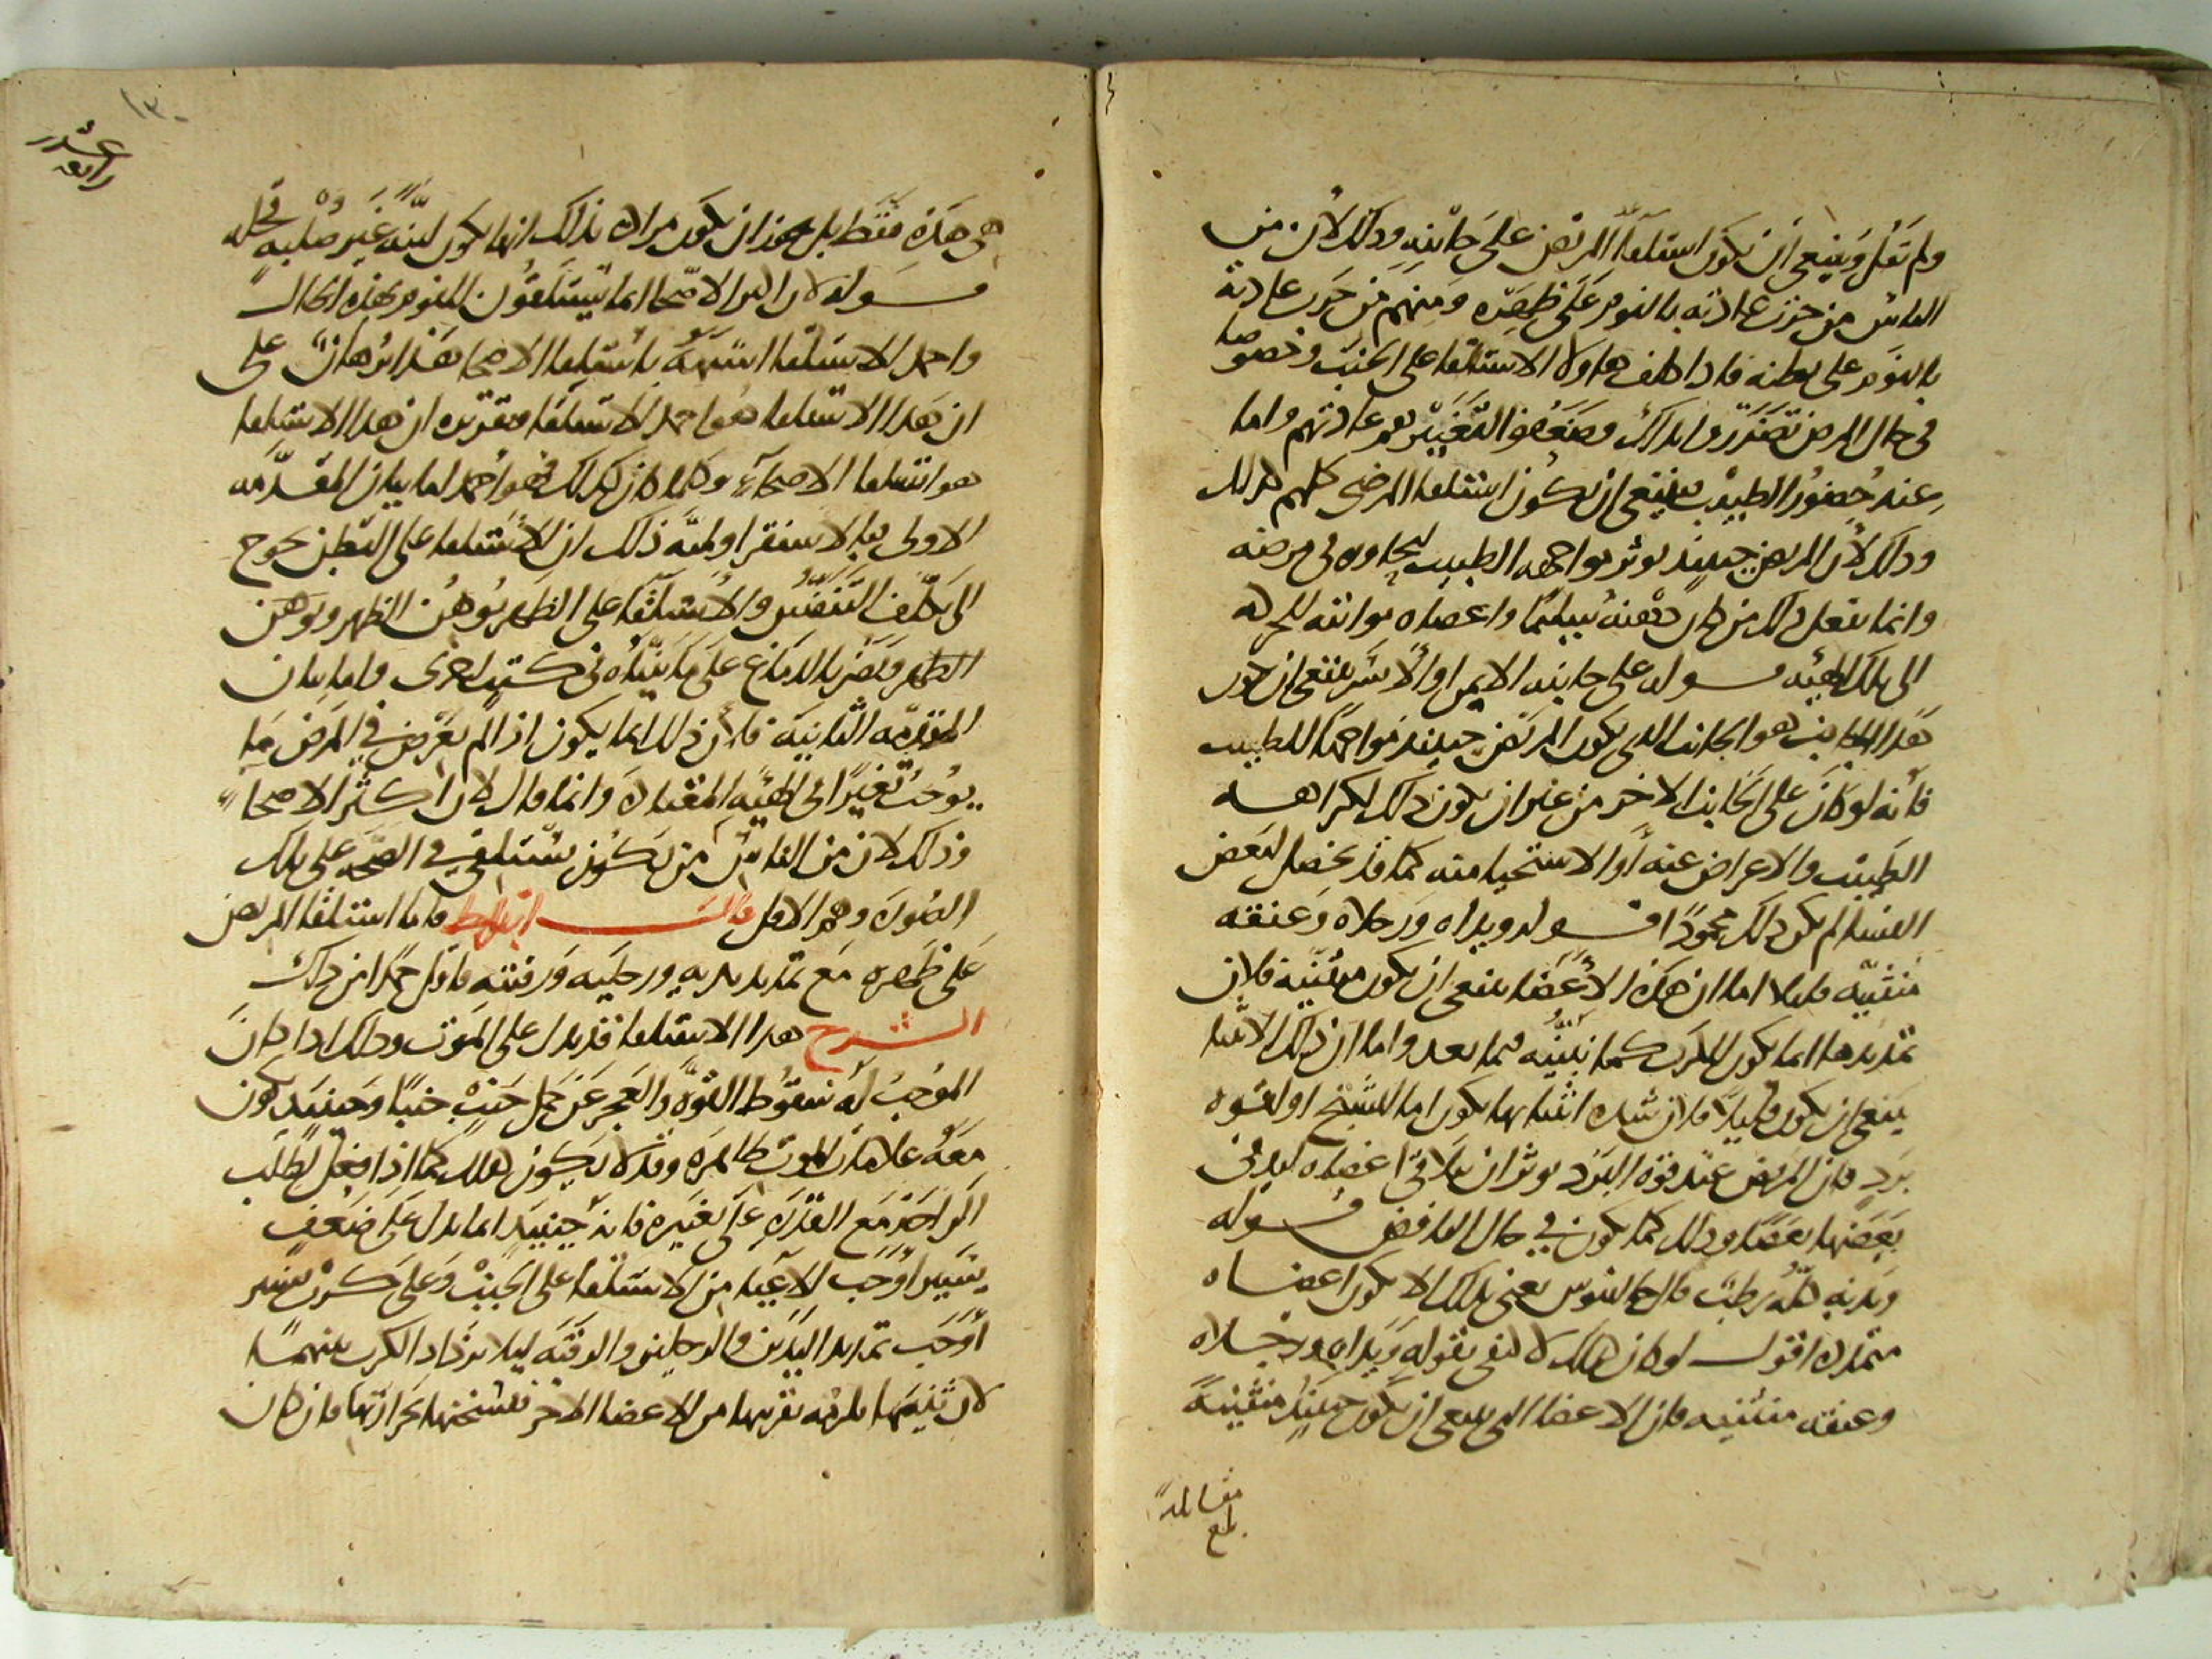 ولم يقل وينبغي أن يكون استلقاء المريض على جانبه وذلك لأن من
الناس من جرت عادته بالنوم على ظهره ومنهم من جرت عادته
بالنوم على بطنه فاذا كلف هاولا الاستلقا على الجنب وخصوصا
في حال المرض تضرروا بذلك وضعفوا لتغيير عادتهم واما
عند حضور الطبيب فينبغي ان يكون استلقا المرضى كلهم كذلك
وذلك لأن المريض حينيذ يوثر مواجهه الطبيب ليحاوره في مرضه
وانما يفعل ذلك من كان ذهنه سليما واعضاه مواتيه للحركه
الى تلك الهيئه قوله على جانبه الايمن او الأيسر ينبغي ان يكون
هذا الجانب هو الجانب الذى يكون المريض حينيذ مواجها للطبيب
فأنه لو كان على الجانب الاخر من غير ان يكون ذلك لكراهه
الطبيب والاعراض عنه أو الاستحيا منه كما قد يحصل لبعض
النسا لم يكن ذلك محمودا قوله ويداه ورجلاه وعنقه
منثنيه قليلا اما ان هذه الأعضا ينبغي ان يكون منثنية فلان
تمديدها انما يكون للكرب كما نبينه فيما بعد واما ان ذلك الانثنا
ينبغي ان يكون قليلا فلان شده انثنايها يكون اما للتشنج او لقوه
برد فان المريض عند قوه البرد يوثر ان يتلاقى اعضاه ليدفى
بعضها بعضا وذلك كما يكون في حال النافض قوله
وبدنه كله رطب قال جالينوس يعنى بذلك الا يكون اعضاه
متمدده اقول لو كان كذلك لاكتفى بقوله ويداه ورجلاه
وعنقه منثنيه فان الاعضا التى ينبغي ان يكون حينيذ منثنية
بلغ
مقابلة
١٣٠
رابعه
عشر
هى هذه فقط بل يجوز ان يكون مراده بذلك انها يكون لينة غير صلبه قحله
قوله لان اكثر الاصحا انما يستلقون للنوم بهذه الحال
واحمد الاستلقا اشبهه باستلقا الاصحا هذا برهان على
ان هذا الاستلقا هو احمد الاستلقا وتقريره ان هذا الاستلقا
هو استلقا الاصحآء وكلما كان كذلك فهو احمد اما بيان المقدمه
الاولى فبالاستقرا ولميه ذلك ان الاستلقا على البطن يحوج
الى تكلف التنفس والاستلقا على الظهر يوهن الظهر ويوهن
الظهر ويضر بالدماغ على ما بيناه في كتب اخرى واما بيان
المقدمه الثانية فلأن ذلك انما يكون اذا لم يعرض في المرض ما
يوجب تغيرا الى الهيئه المعتاده وانما قال لان اكثر الاصحا
وذلك لان من الناس من يكون يستلقى في الصحه على تلك
الصوره وهم الاقل قال ابقراط فاما استلقا المريض
على ظهره مع تمديد يديه ورجليه ورقبته فاقل حمدا من ذلك
الشرح هذا الاستلقا قد يدل على الموت وذلك اذا كان
الموجب له سقوط القوة والعجز عن حمل جنب جنبا وحينيذ يكون
معه علامات الموت ظاهره وقد لا يكون كذلك كما اذا فعل لطلب
الراحه مع القدره على تغيره فانه حينيذ انما يدل على ضعف
يسير اوجب الاعيا من الاستلقا على الجنب وعلى كرب يسير
أوجب تمديد اليدين والرجلين والرقبه ليلا يزداد الكرب بثنيهما
لان ثنيها يلزمه تقربها من الاعضا الاخر فتسخنها بحرارتها فان كان